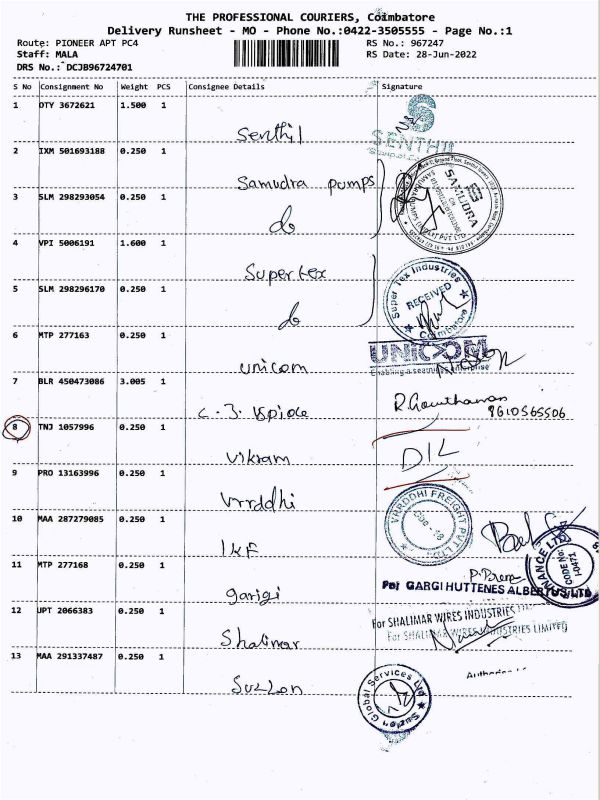 THE PROFESSIONAL COURIERS, Coimbatore
Delivery Runsheet - MO - Phone No.:0422-3505555 - Page No.:1
Route: PIONEER APT PC4 RS No.: 967247
Staff: MALA RS Date: 28-Jun-2022
DRS No.: DCJB96724701
S No Consignment No Weight PCS Consignee Details Signature
1 DTY 3672621 1.500 1
Senthil SENTHIL
2 IXM 501693188 0.250 1
Samudra pumps SAMUDRA
3 SLM 298293054 0.250 1
do
4 VPI 5006191 1.600 1
Supertex Super Tex Industries
5 SLM 298296170 0.250 1 RECEIVED
do Coimbatore
6 MTP 277163 0.250 1
unicom UNICOM
Enabling a seamless enterprise
7 BLR 450473086 3.005 1
R. Gowthaman
C. J. 9610565506
8 TNJ 1057996 0.250 1
Vikram DIL
9 PRO 13163996 0.250 1
Vrrddhi VRRDDHI FREIGHT PVT LTD
10 MAA 287279085 0.250 1
IKF CODE No. I-0471
11 MTP 277168 0.250 1
gargi For GARGI HUTTENES ALBERTUS LTD
12 UPT 2066383 0.250 1 For SHALIMAR WIRES INDUSTRIES
For SHALIMAR WIRES INDUSTRIES LIMITED
Shalimar
13 MAA 291337487 0.250 1
Suzlon Suzlon Global Services Ltd